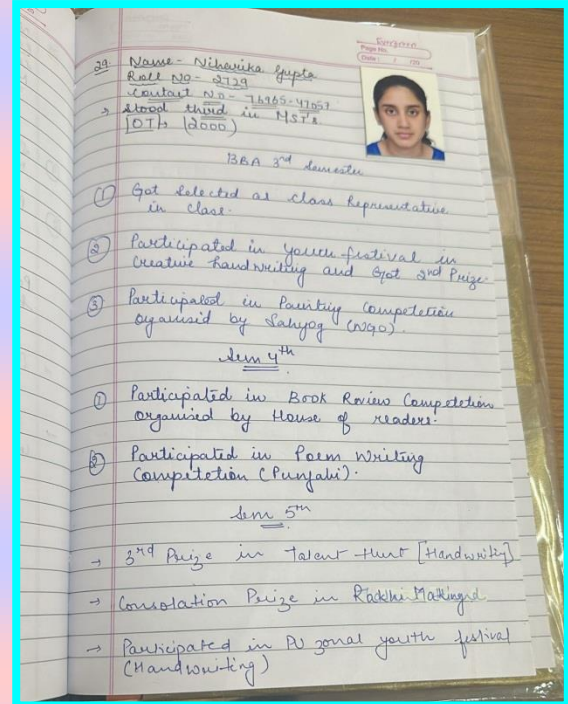 Evergreen
Page No.
Date: / /20
29. Name - Niharika Gupta
Roll No - 2729
Contact No. - 76965-47057
→ Stood third in MST's
[OT] (2000)
BBA 3rd Semester
① Got Selected as Class Representative
in Class.
② Participated in youth festival in
Creative handwriting and Got 2nd Prize.
③ Participated in Painting Competetion
oganised by Sahyog (NGO).
Sem 4th
① Participated in Book Review Competetion
organised by House of readers.
② Participated in Poem Writing
Competetion (Punjabi).
Sem 5th
→ 3rd Prize in Talent Hunt [Handwriting]
→ Consolation Prize in Rakhi Making
→ Participated in PU zonal youth festival
(Handwriting)